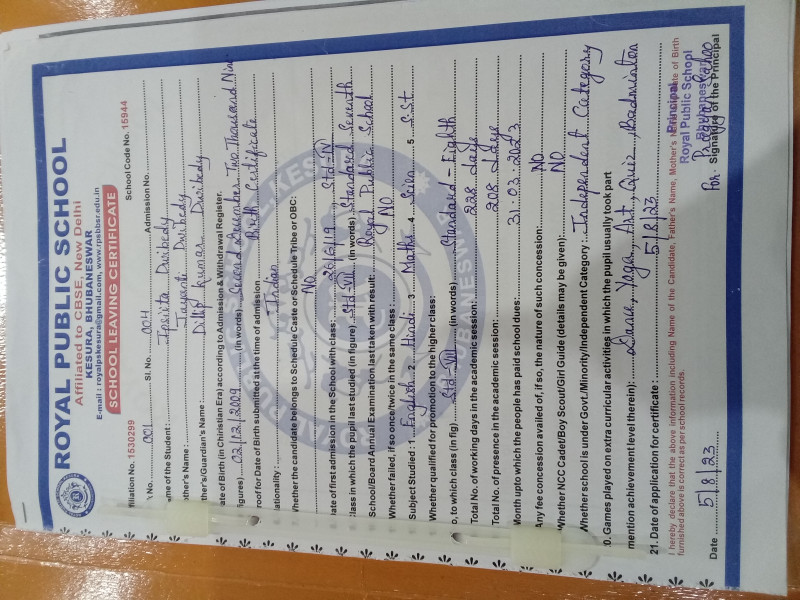 ROYAL PUBLIC SCHOOL
Affiliated to CBSE, New Delhi
KESURA, BHUBANESWAR
E-mail : royalpskesura@gmail.com, www.rpsbbsr.edu.in
SCHOOL LEAVING CERTIFICATE
filiation No. 1530299 School Code No. 15944
No. 001 Sl. No. 004 Admission No.
me of the Student : Dwibedy
other's Name : Jayanti Dwibedy
ther's/Guardian's Name : Dilip Kumar Dwibedy
ate of Birth (in Christian Era) according to Admission & Withdrawal Register.
igures) 02/12/2009 (in Words) Second December Two Thousand Nine
roof for Date of Birth submitted at the time of admission Birth Certificate
ationality : Indian
hether the candidate belongs to Schedule Caste or Schedule Tribe or OBC:
NO
ate of first admission in the School with class : 20/6/19, Std-IV
lass in which the pupil last studied (in figure) Std-VII (in words) Standard Seventh
School/Board Annual Examination last taken with result : Royal Public School
Whether failed, if so once/twice in the same class : NO
Subject Studied : 1 English 2 Hindi 3 Maths 4 Scien 5 S.St.
Whether qualified for promotion to the higher class:
o, to which class (in fig) Std-VIII (in words) Standard - Eighth
Total No. of working days in the academic session: 228 days
Total No. of presence in the academic session: 208 days
Month upto which the people has paid school dues: 31.03.2023
Any fee concession availed of, if so, the nature of such concession: NO
Whether NCC Cadet/Boy Scout/Girl Guide (details may be given): NO
Whether school is under Govt./Minority/Independent Category : Independent Category
0. Games played on extra curricular activities in which the pupil usually took part
mention achievement level therein): Dance, Yoga, Art, Quiz, Badminton
21. Date of application for certificate : 5/8/23
I hereby declare that the above information including Name of the Candidate, Father's Name, Mother's Name, Date of Birth
furnished above is correct as per school records.
Principal
Royal Public School
Bhubaneswar
Date 5/8/23 for Signature of the Principal